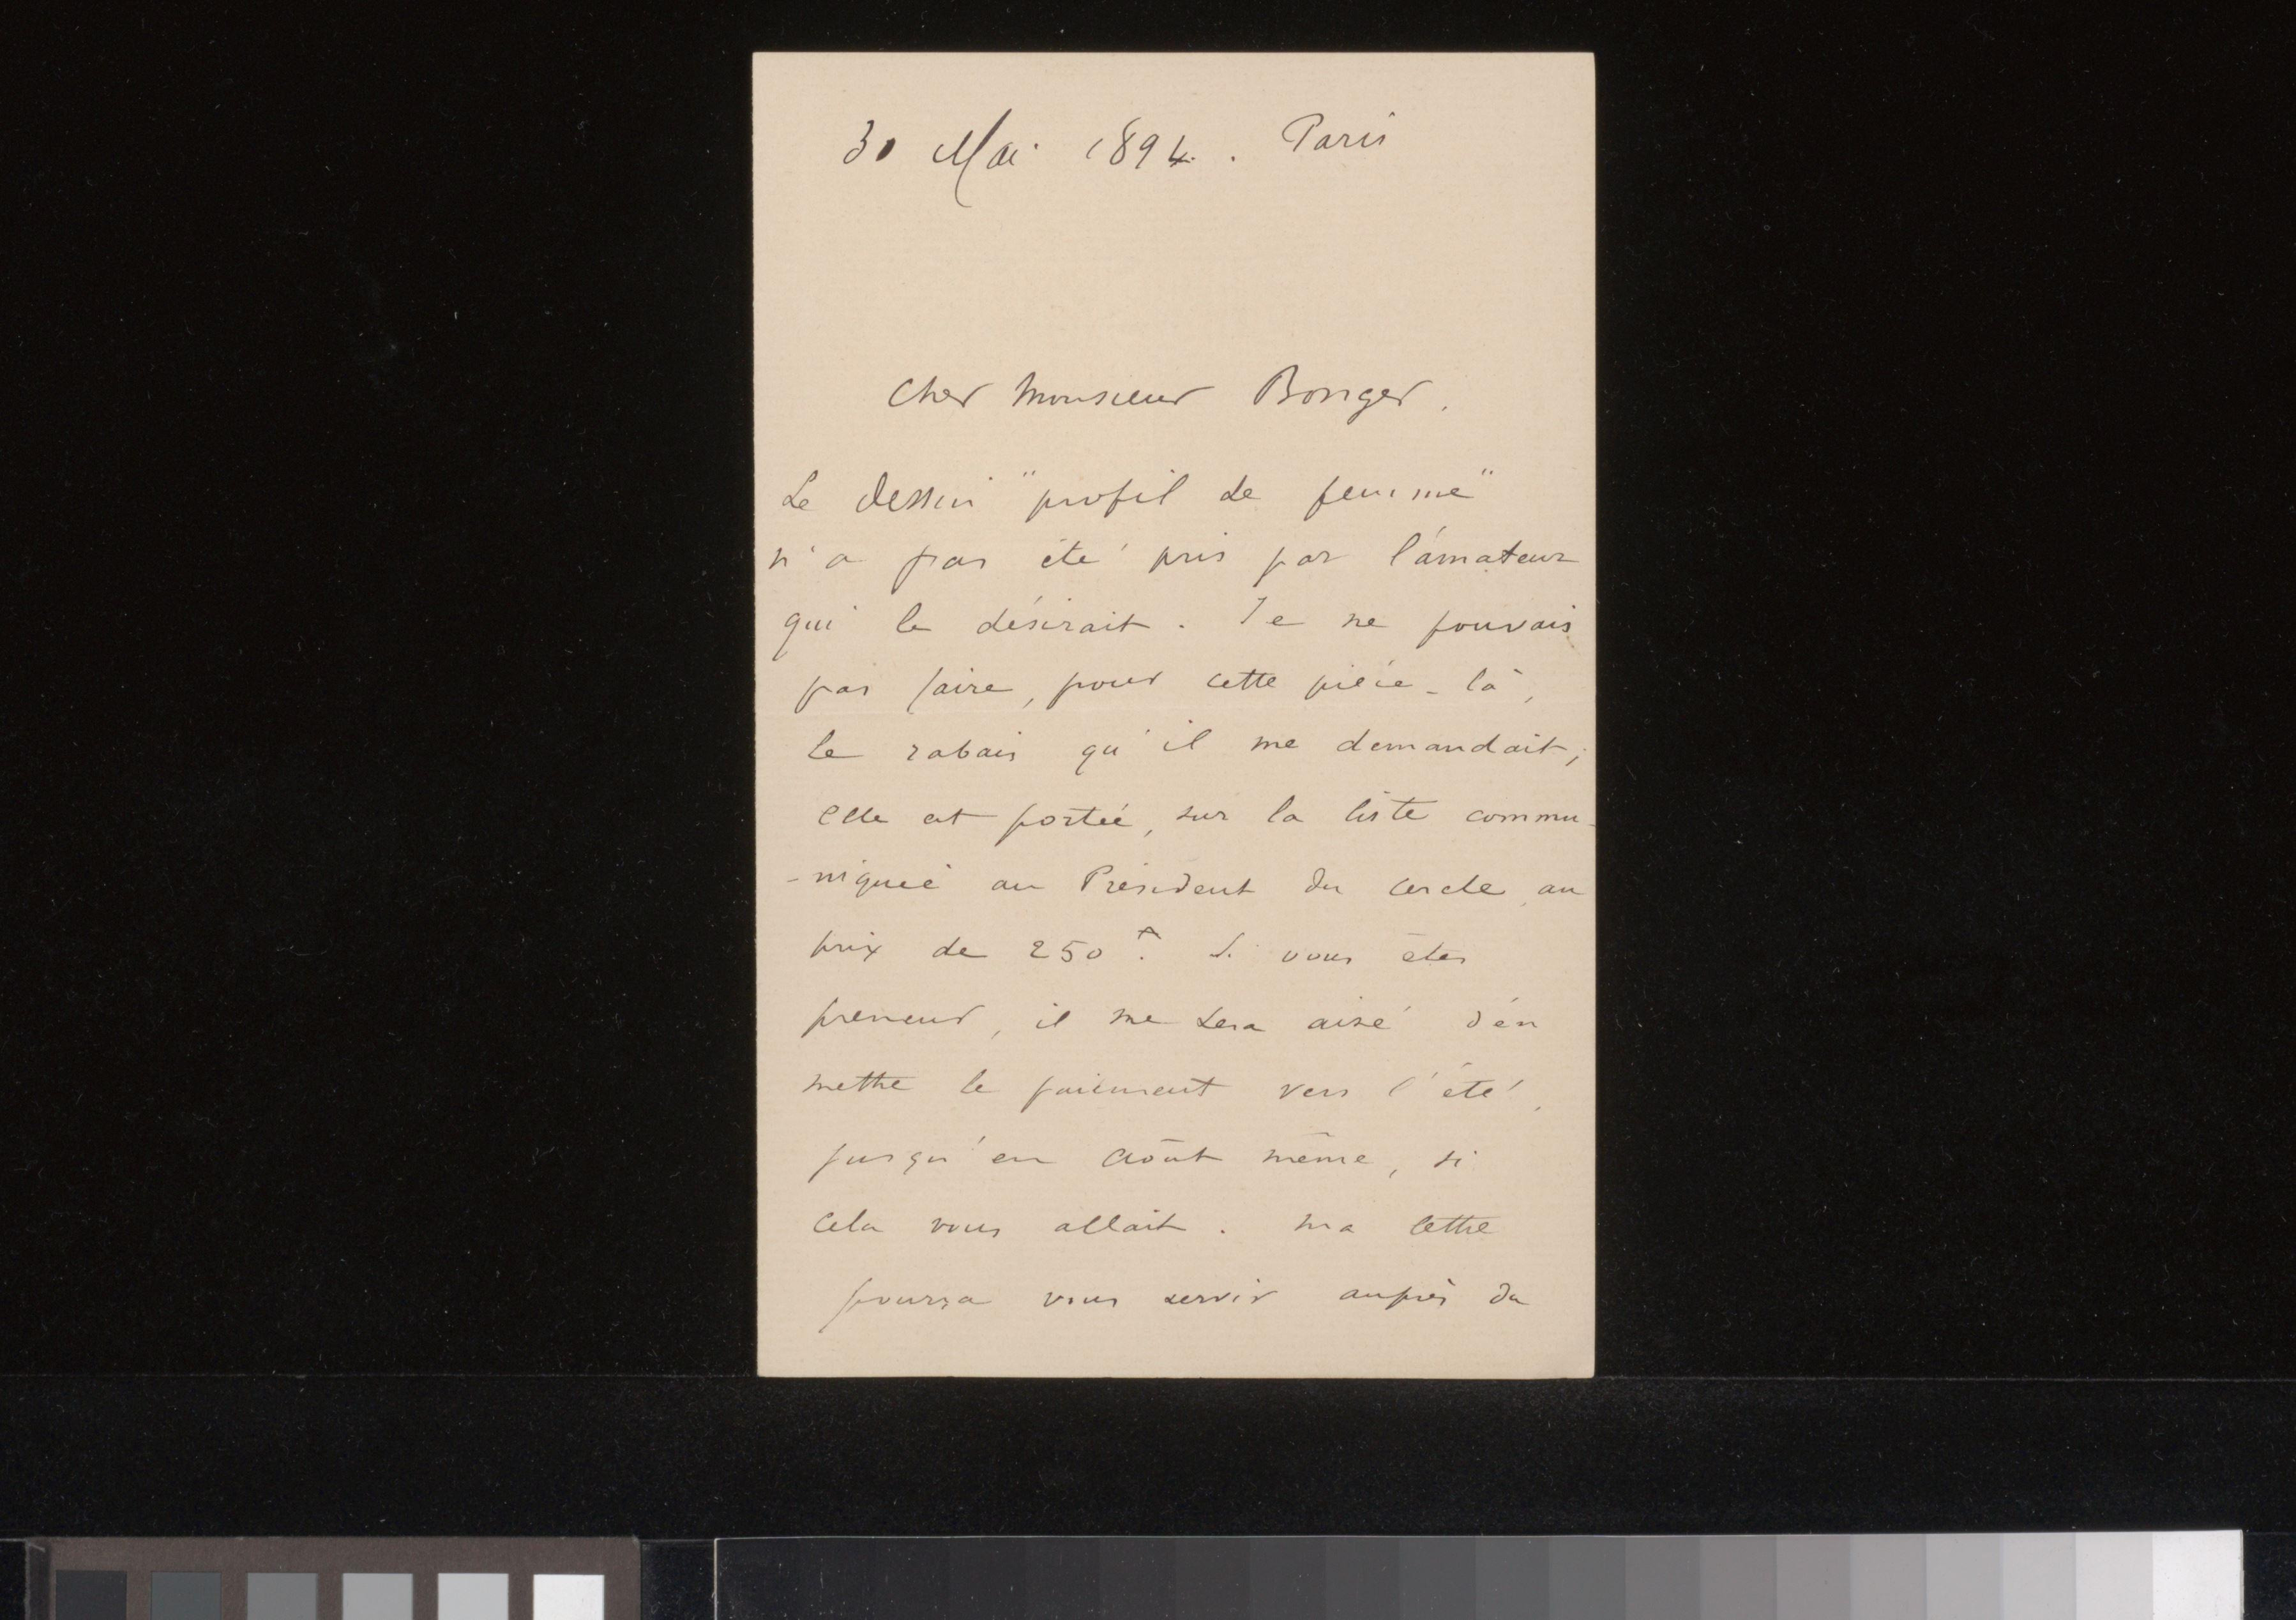 30 Mai 1894. Paris
Cher Monsieur Bonger.
Le Dessin "profil de femme"
n'a pas été pris par l'amateur
qui le désirait. Je ne pouvais
pas faire, pour cette pièce-là,
le rabais qu'il me demandait;
elle est portée, sur la liste commu-
-niquée au Président du cercle, au
prix de 250 f. Si vous êtes
preneur, il me sera aisé d'en
mettre le paiement vers l'été,
jusqu'en Août même, si
cela vous allait. Ma lettre
pourra vous servir auprès du